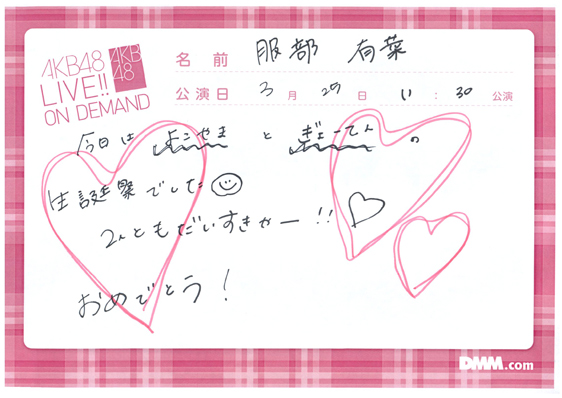 AKB48
LIVE!!
ON DEMAND
AKB
48
名前 服部 有菜
公演日 3月29日 11:30 公演
今日は よこやま と ぎょーてん の
生誕祭でした
2人ともだいすきやー!!
おめでとう!
DMM.com